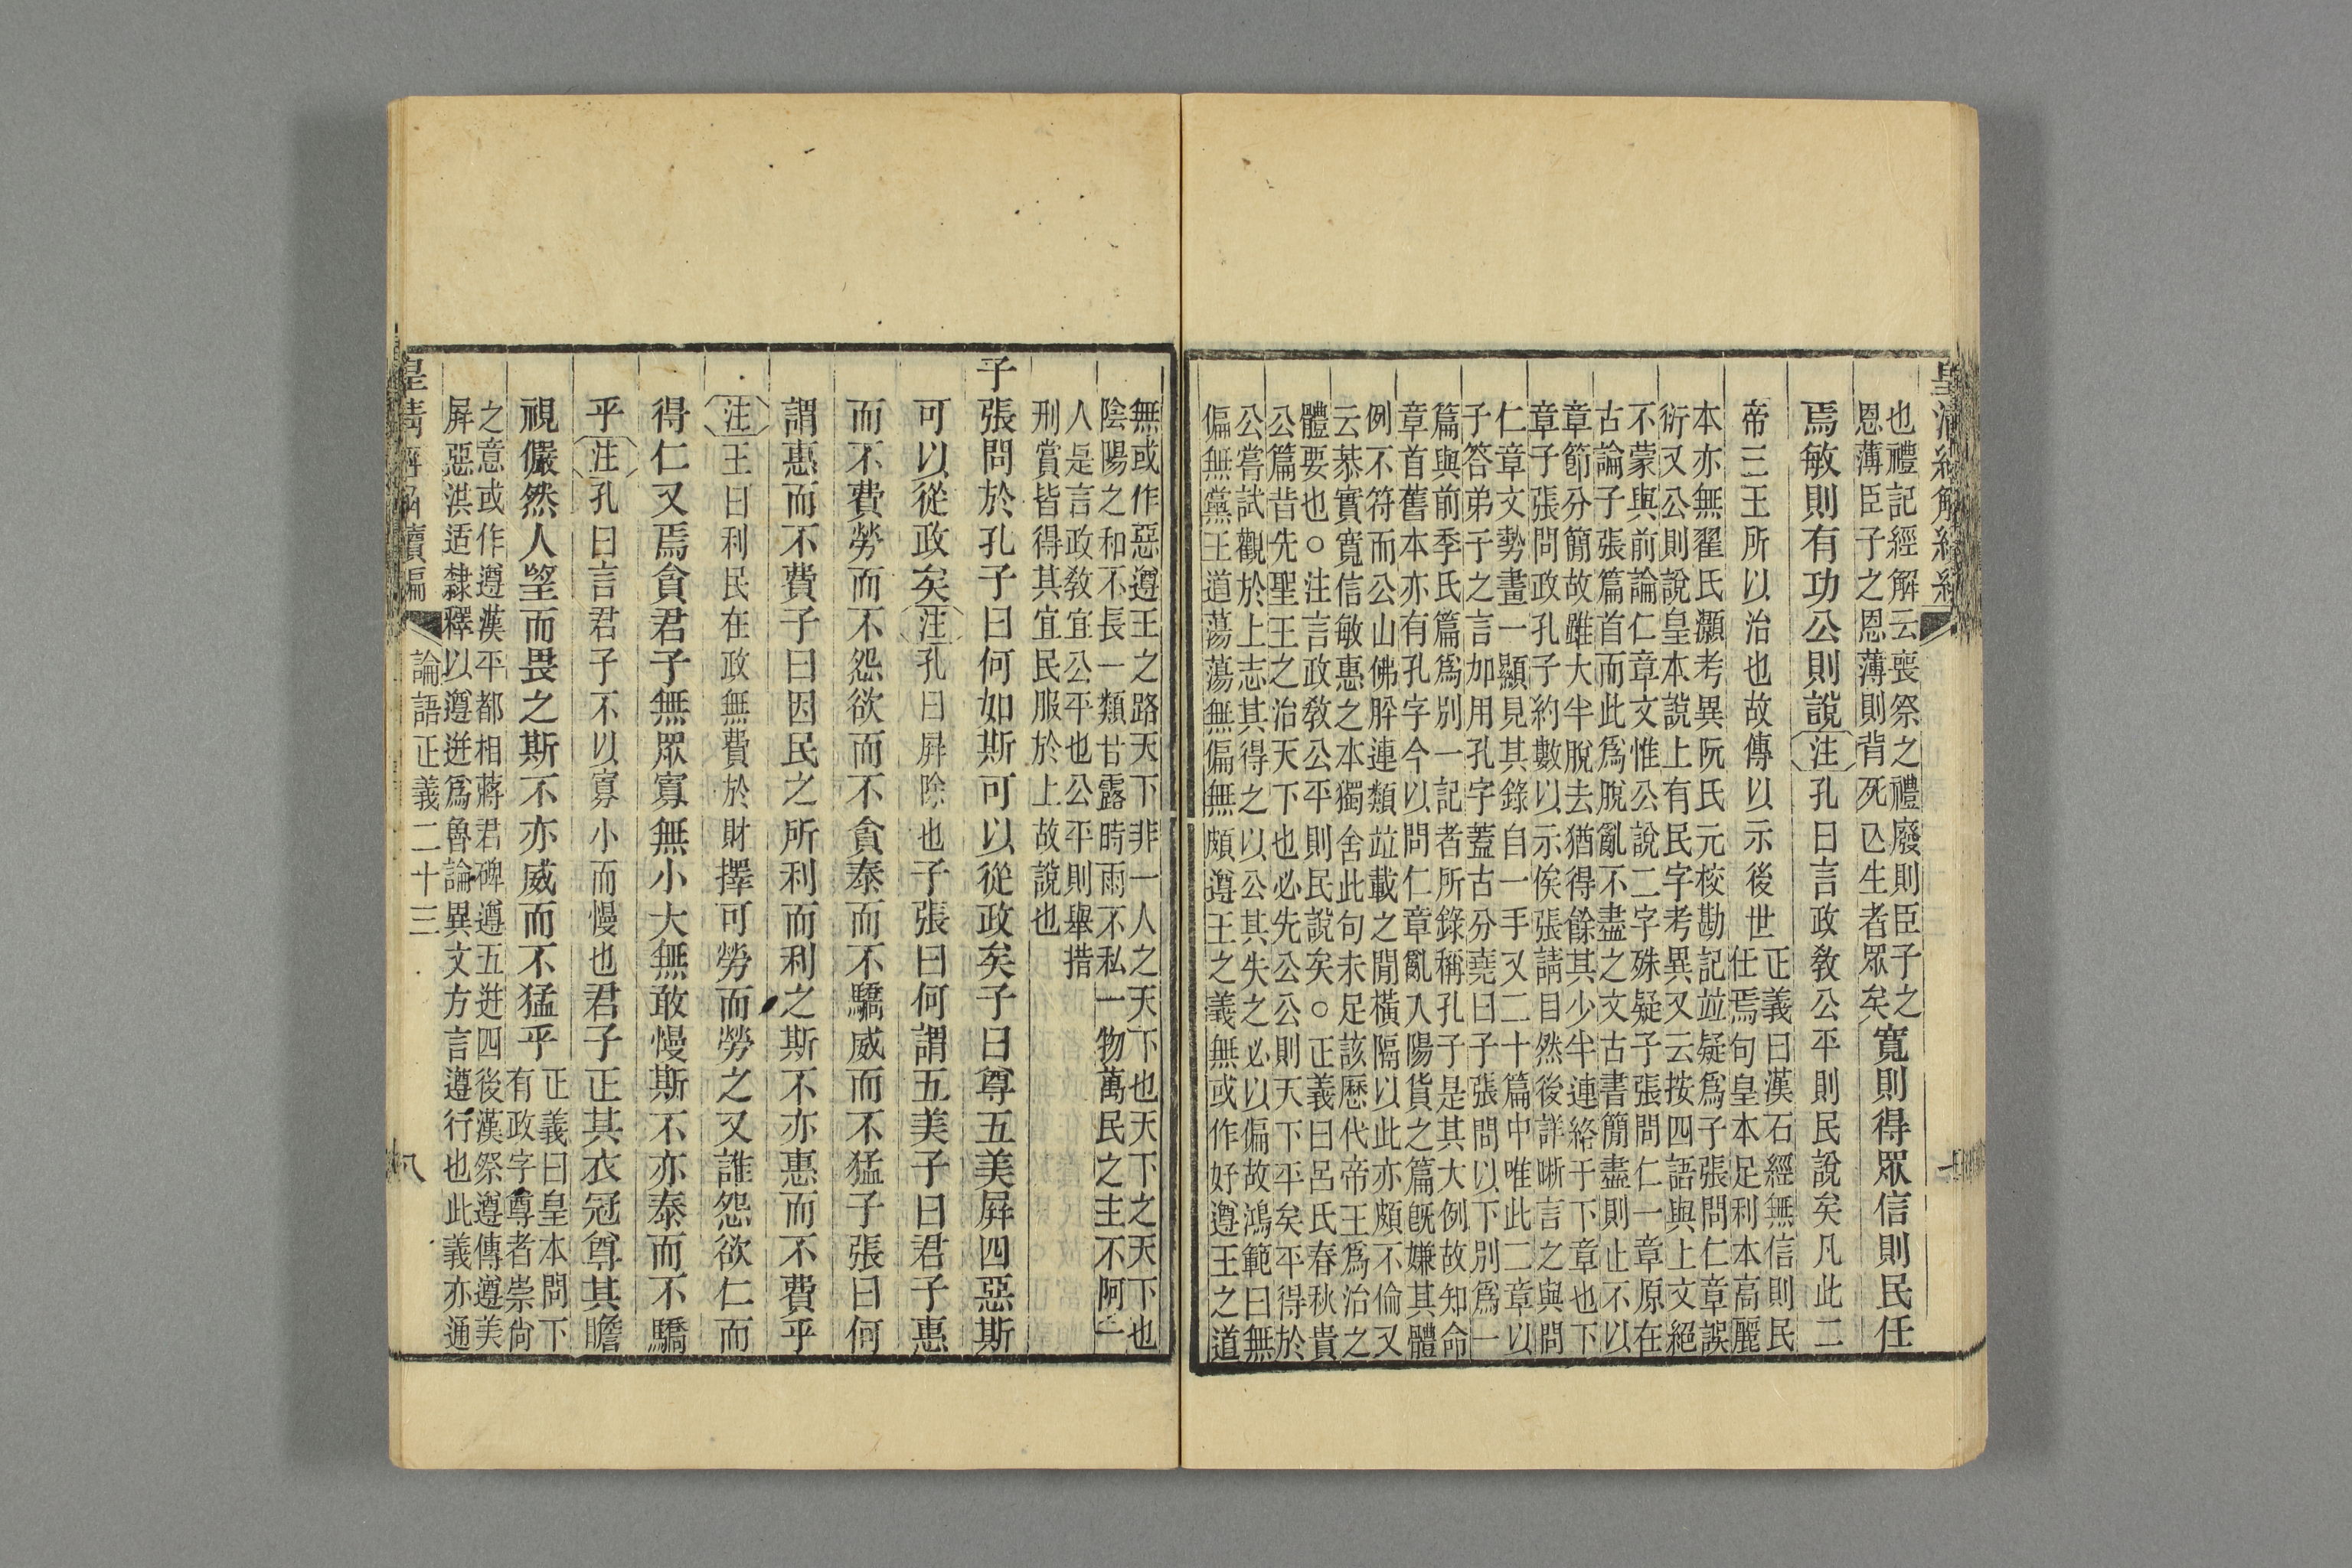 皇清經解續編
也禮記經解云喪祭之禮廢則臣子之
恩薄臣子之恩薄則背死亾生者眾矣
寬則得眾信則民任
焉敏則有功公則說注孔曰言政教公平則民說矣凡此二
帝三王所以治也故傳以示後世
正義曰漢石經無信則民
任焉句皇本足利本高麗
本亦無翟氏灝考異阮氏元校勘記竝疑爲子張問仁章誤
衍又公則說皇本說上有民字考異又云按四語與上文絕
不蒙與前論仁章文惟公說二字殊疑子張問仁一章原在
古論子張篇首而此爲脫亂不盡之文古書簡盡則止不以
章節分簡故雖大半脫去猶得餘其少半連絡于下章也下
章子張問政孔子約數以示俟張請目然後詳晰言之與問
仁章文勢畫一顯見其錄自一手又二十篇中唯此二章以
子答弟子之言加用孔字蓋古分堯曰子張問以下別爲一
篇與前季氏篇爲別一記者所錄稱孔子是其大例故知命
章首舊本亦有孔字今以問仁章亂入陽貨之篇既嫌其體
例不符而公山佛肸連類竝載之閒橫隔以此亦頗不倫又
云恭實寬信敏惠之本獨舍此句未足該歷代帝王爲治之
體要也○注言政教公平則民說矣○正義曰呂氏春秋貴
公篇昔先聖王之治天下也必先公公則天下平矣平得於
公嘗試觀於上志其得之以公其失之必以偏故鴻範曰無
偏無黨王道蕩蕩無偏無頗遵王之義無或作好遵王之道
無或作惡遵王之路天下非一人之天下也天下之天下也
陰陽之和不長一類甘露時雨不私一物萬民之主不阿一
人是言政教宜公平也公平則舉措
刑賞皆得其宜民服於上故說也
子張問於孔子曰何如斯可以從政矣子曰尊五美屏四惡斯
可以從政矣注孔曰屏除也子張曰何謂五美子曰君子惠
而不費勞而不怨欲而不貪泰而不驕威而不猛子張曰何
謂惠而不費子曰因民之所利而利之斯不亦惠而不費乎
注王曰利民在政無費於財擇可勞而勞之又誰怨欲仁而
得仁又焉貪君子無眾寡無小大無敢慢斯不亦泰而不驕
乎注孔曰言君子不以寡小而慢也君子正其衣冠尊其瞻
視儼然人望而畏之斯不亦威而不猛乎
正義曰皇本問下
有政字尊者崇尚
之意或作遵漢平都相蔣君碑遵五迸四後漢祭遵傳遵美
屏惡洪适隸釋以遵迸爲魯論異文方言遵行也此義亦通
皇清經解續編 論語正義二十三 八